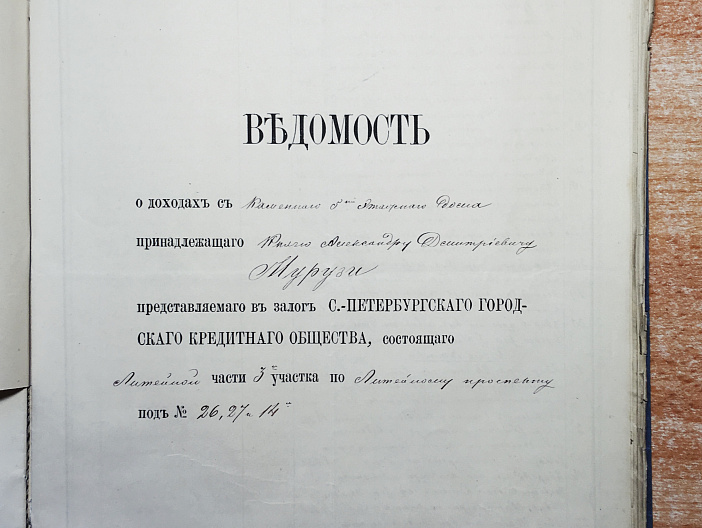 ВѢДОМОСТЬ
о доходахъ съ Каменнаго 5ти Этажнаго Дома
принадлежащаго Князю Александру Дмитріевичу
Мурузи
представляемаго въ залогъ С.-ПЕТЕРБУРГСКАГО ГОРОД-
СКАГО КРЕДИТНАГО ОБЩЕСТВА, состоящаго
Литейной части 3го участка по Литейному проспекту
подъ № 26, 27 и 14й